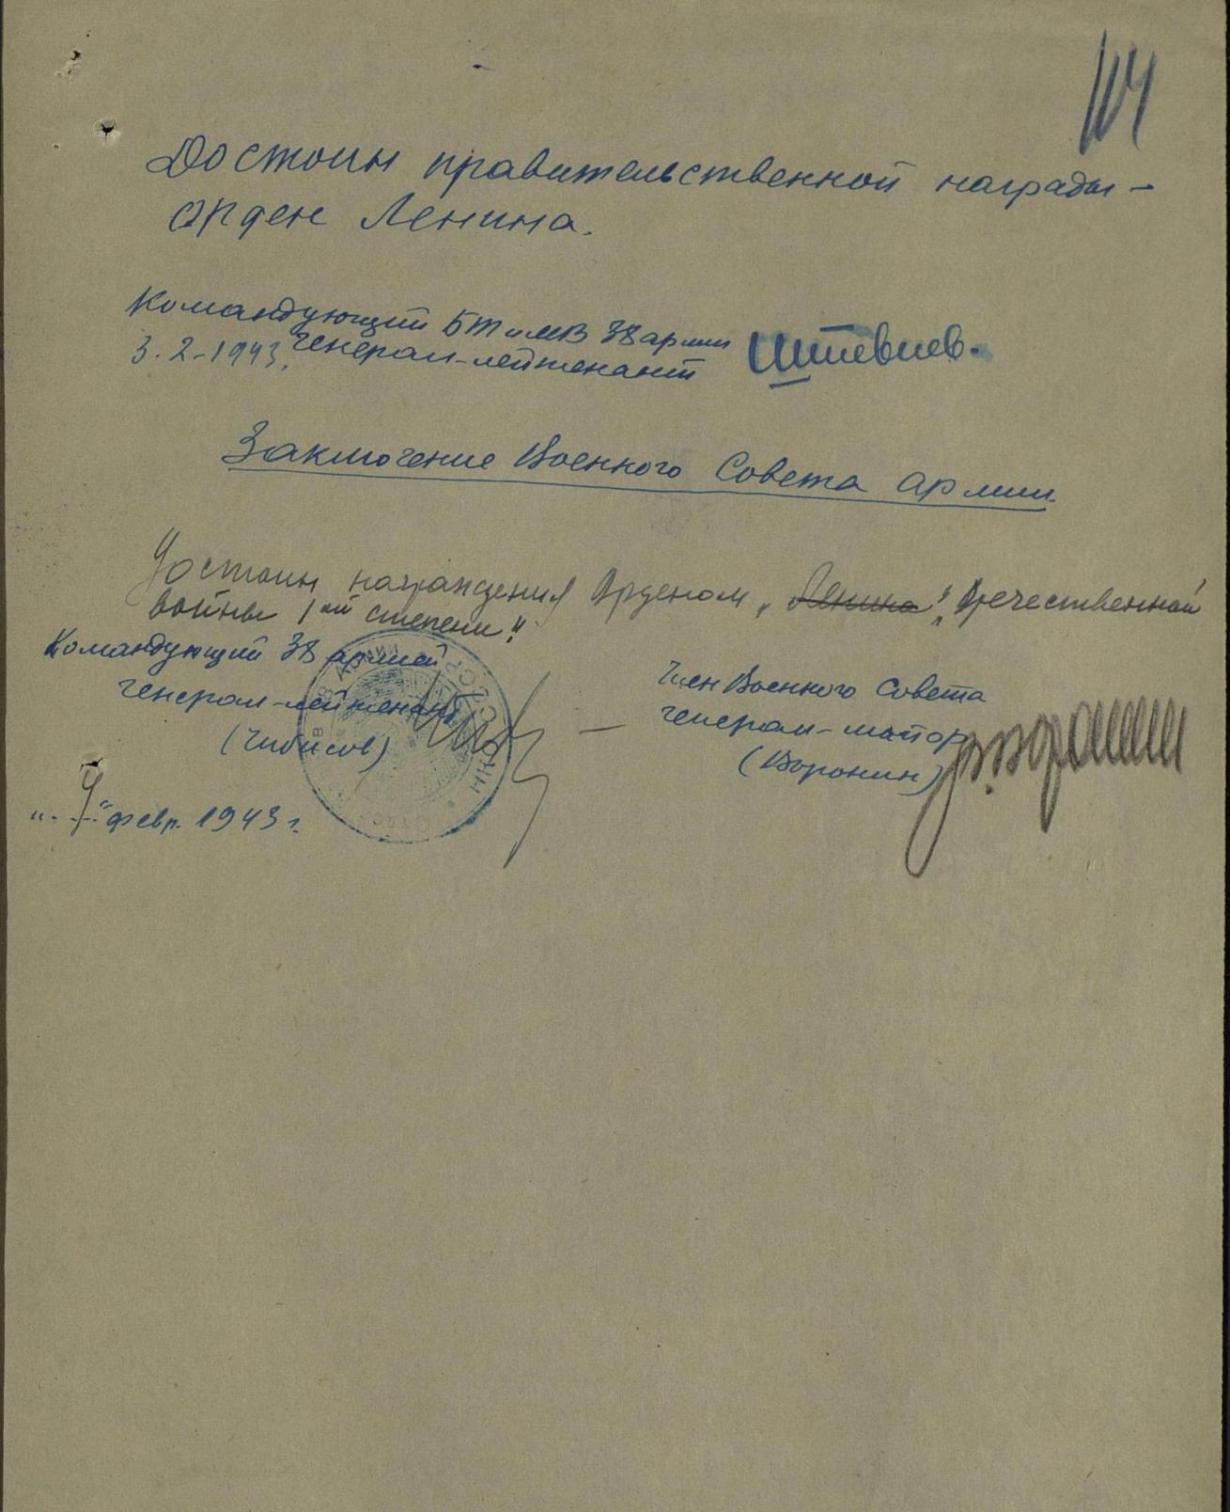 104
Достоин правительственной награды –
орден Ленина.
Командующий БТ и МВ 38 армии
3.2-1943. генерал-лейтенант Штевнев.
Заключение Военного Совета армии
Достоин награждения Орденом „Ленина" „Отечественной
войны 1ой степени".
Командующий 38 армией
генерал-лейтенант
(Чибисов)
Член Военного Совета
генерал-майор
(Воронин)
"4" февр. 1943 г.